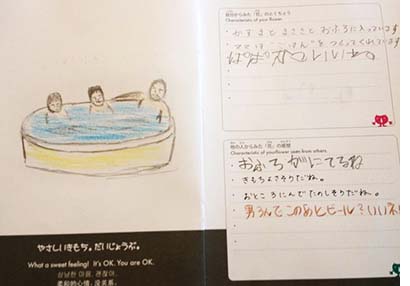 やさしいきもち。だいじょうぶ。
What a sweet feeling! It's OK. You are OK.
상냥한 마음. 괜찮아.
柔和的心情。没关系。
自分からみた「花」のとくちょう
Characteristic of your flower
かずまとまさとと おふろに入っています
ママは さんをつくってくれています
ぱぱかっこいいね
他の人からみた「花」の感想
Characteristic of yourflower seen from others
おふろがにてるね
きもちよさそうだね。
おとこ3にんで たのしそうだね。
男3人でこのあとビール?いいネ